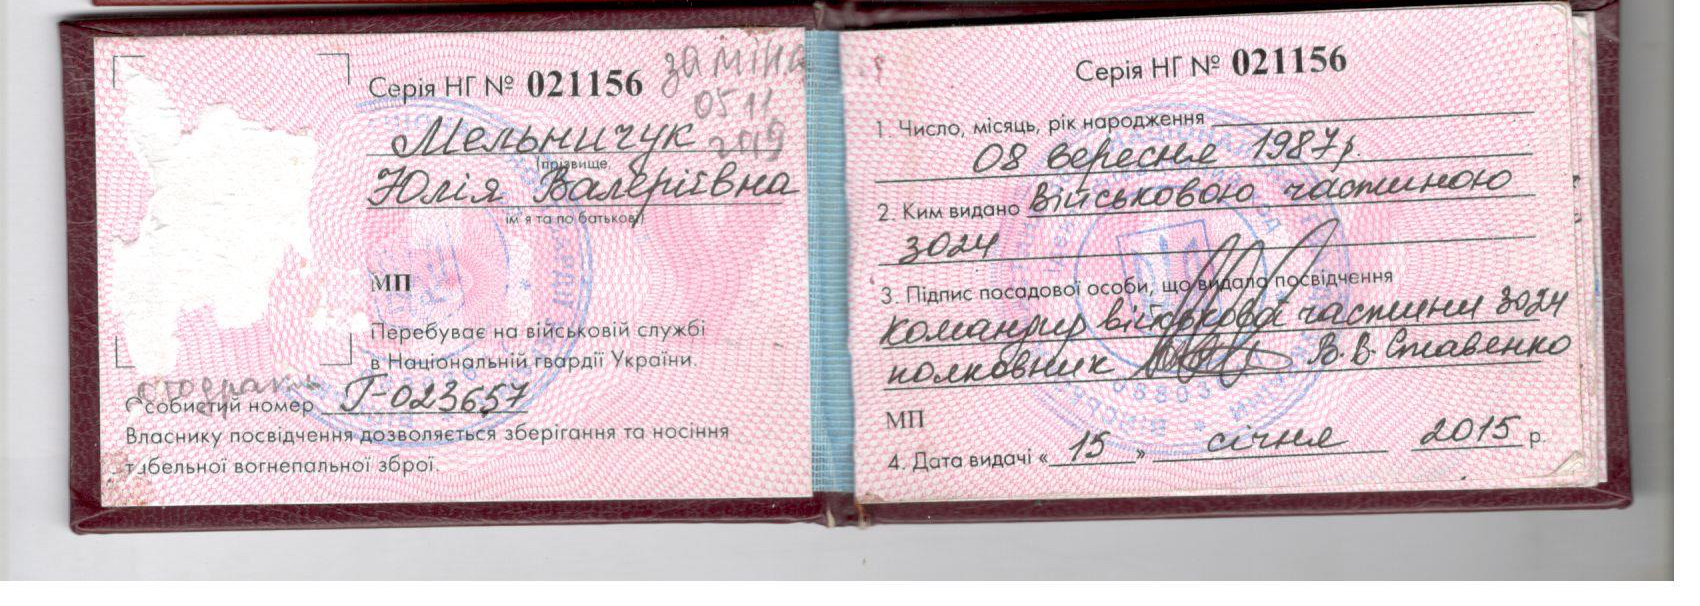 Серія НГ № 021156
заміна
05 11
2019
Мельничук
(прізвище,
Юлія Валеріївна
ім'я та по батькові)
МП
Перебуває на військовій службі
в Національній гвардії України.
Особистий номер Г-023657
Власнику посвідчення дозволяється зберігання та носіння
табельної вогнепальної зброї.
Серія НГ № 021156
1. Число, місяць, рік народження
08 вересня 1987р.
2. Ким видано Військовою частиною
3024
3. Підпис посадової особи, що видала посвідчення
командир військової частини 3024
полковник В.В. Ставенко
МП
4. Дата видачі « 15 » січня 2015 р.